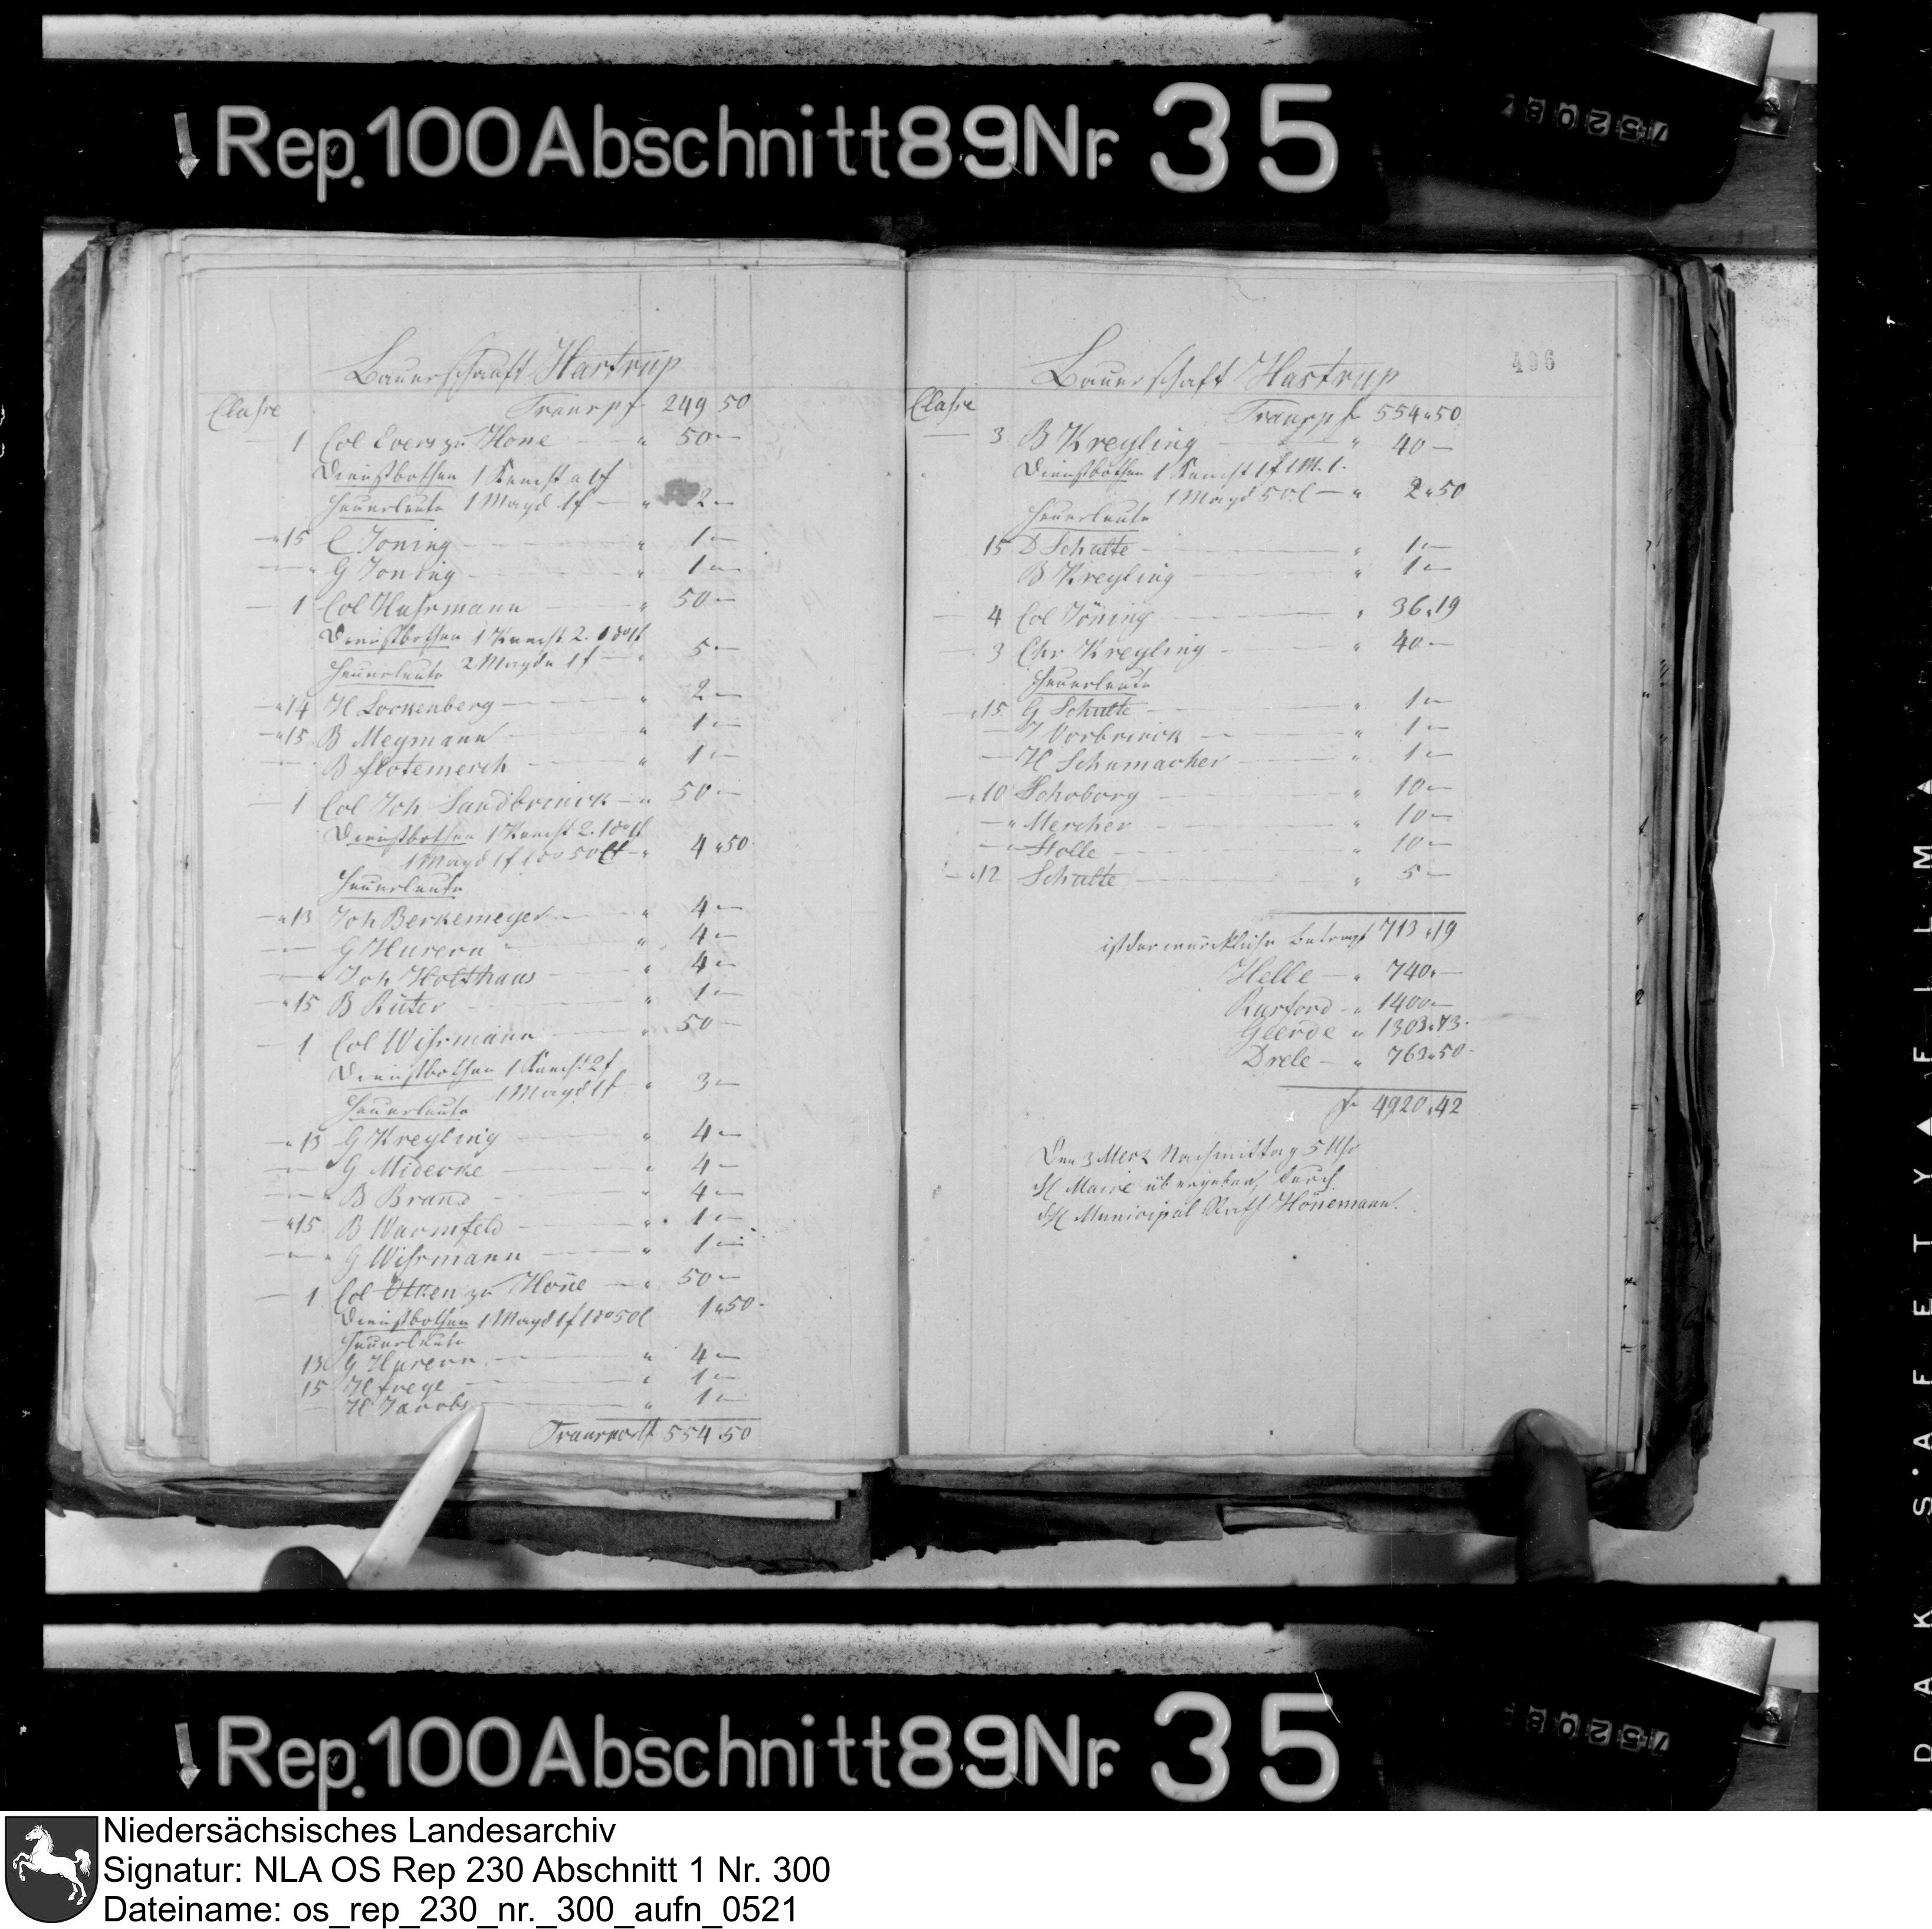 Rep. 100 Abschnitt 89 Nr. 35
75208
Bauerschaft Hartrup
Classe Transpf 249 50
1 Col Evers zu Hone " 50 —
Dienstbothen 1 Knecht a 1 f
Heuerleute 1 Magd 1 f — " 2 —
15 C Joning " 1 —
" G Joning " 1 —
1 Col Huhrmann " 50 —
Dienstbothen 1 Knecht 2.
Heuerleute 2 Magde 1 f — " 5 —
14 H Lockenberg " 2 —
15 B Meymann " 1 —
B Flotemersch " 1 —
1 Col Joh Sandbrinck " 50 —
Dienstbothen 1 Knecht 2.
1 Magd 1 f 50 " 4 " 50
Heuerleute
13 Joh Berkemeyer " 4 —
G Hurern " 4 —
" Joh Holthaus " 4 —
15 B Rüter " 1 —
1 Col Wihrmann " 50 —
Dienstbothen 1 Knecht 2 f
1 Magd 1 f " 3 —
Heuerleute
13 G Kreyling " 4 —
G Midecke " 4 —
" B Brand " 4 —
15 B Warmfeld " 1 —
" G Wihrmann " 1 —
1 Col Utken zu Höne " 50 —
Dienstbothen 1 Magd 1 f 50 C 1 " 50
Heuerleute
13 G Hurern " 4 —
15 H Freye " 1 —
H Jacobs " 1 —
Transport 554 50
496
Bauerschaft Hastrup
Classe Transpf 554 " 50
3 B Kreyling " 40 —
Dienstbothen 1 Knecht 1 f
1 Magd 50 C — " 2 " 50
Heuerleute
15 D Schulte " 1 —
B Kreyling " 1 —
4 Col Jöning " 36 " 19
3 Chr Kreyling " 40 —
Heuerleute
15 G Schulte " 1 —
J Vorbrinck " 1 —
H Schumacher " 1 —
10 Schoborg " 10 —
" Mercher " 10 —
" Stolle " 10 —
12 Schulte " 5 —
ist der würckliche Betragt 713 " 19
Helle — " 740 " —
Rusford " 1400 —
Geerde " 1303 " 73
Drele — " 763 " 50
f 4920 " 42
Den 3 Merz Nachmittag 5 Uhr
H Maire übergeben, durch
H Municipal Rath Hönemann.
KODAK SAFETY FILM
Rep. 100 Abschnitt 89 Nr. 35
75208
Niedersächsisches Landesarchiv
Signatur: NLA OS Rep 230 Abschnitt 1 Nr. 300
Dateiname: os_rep_230_nr._300_aufn_0521